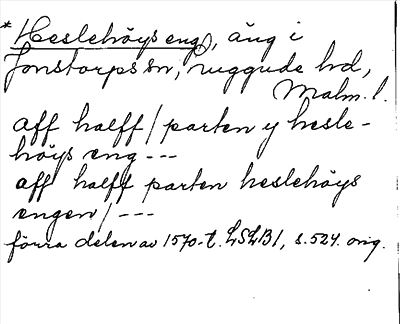 * Heslehöys eng), äng i
Jonstorps sn, Luggude hd,
Malm. l.
aff halff / parten y hesle-
höys eng ---
aff halff parten heslehöys
engen / ---
förra delen av 1570-t. LSLB1, s. 524. orig.